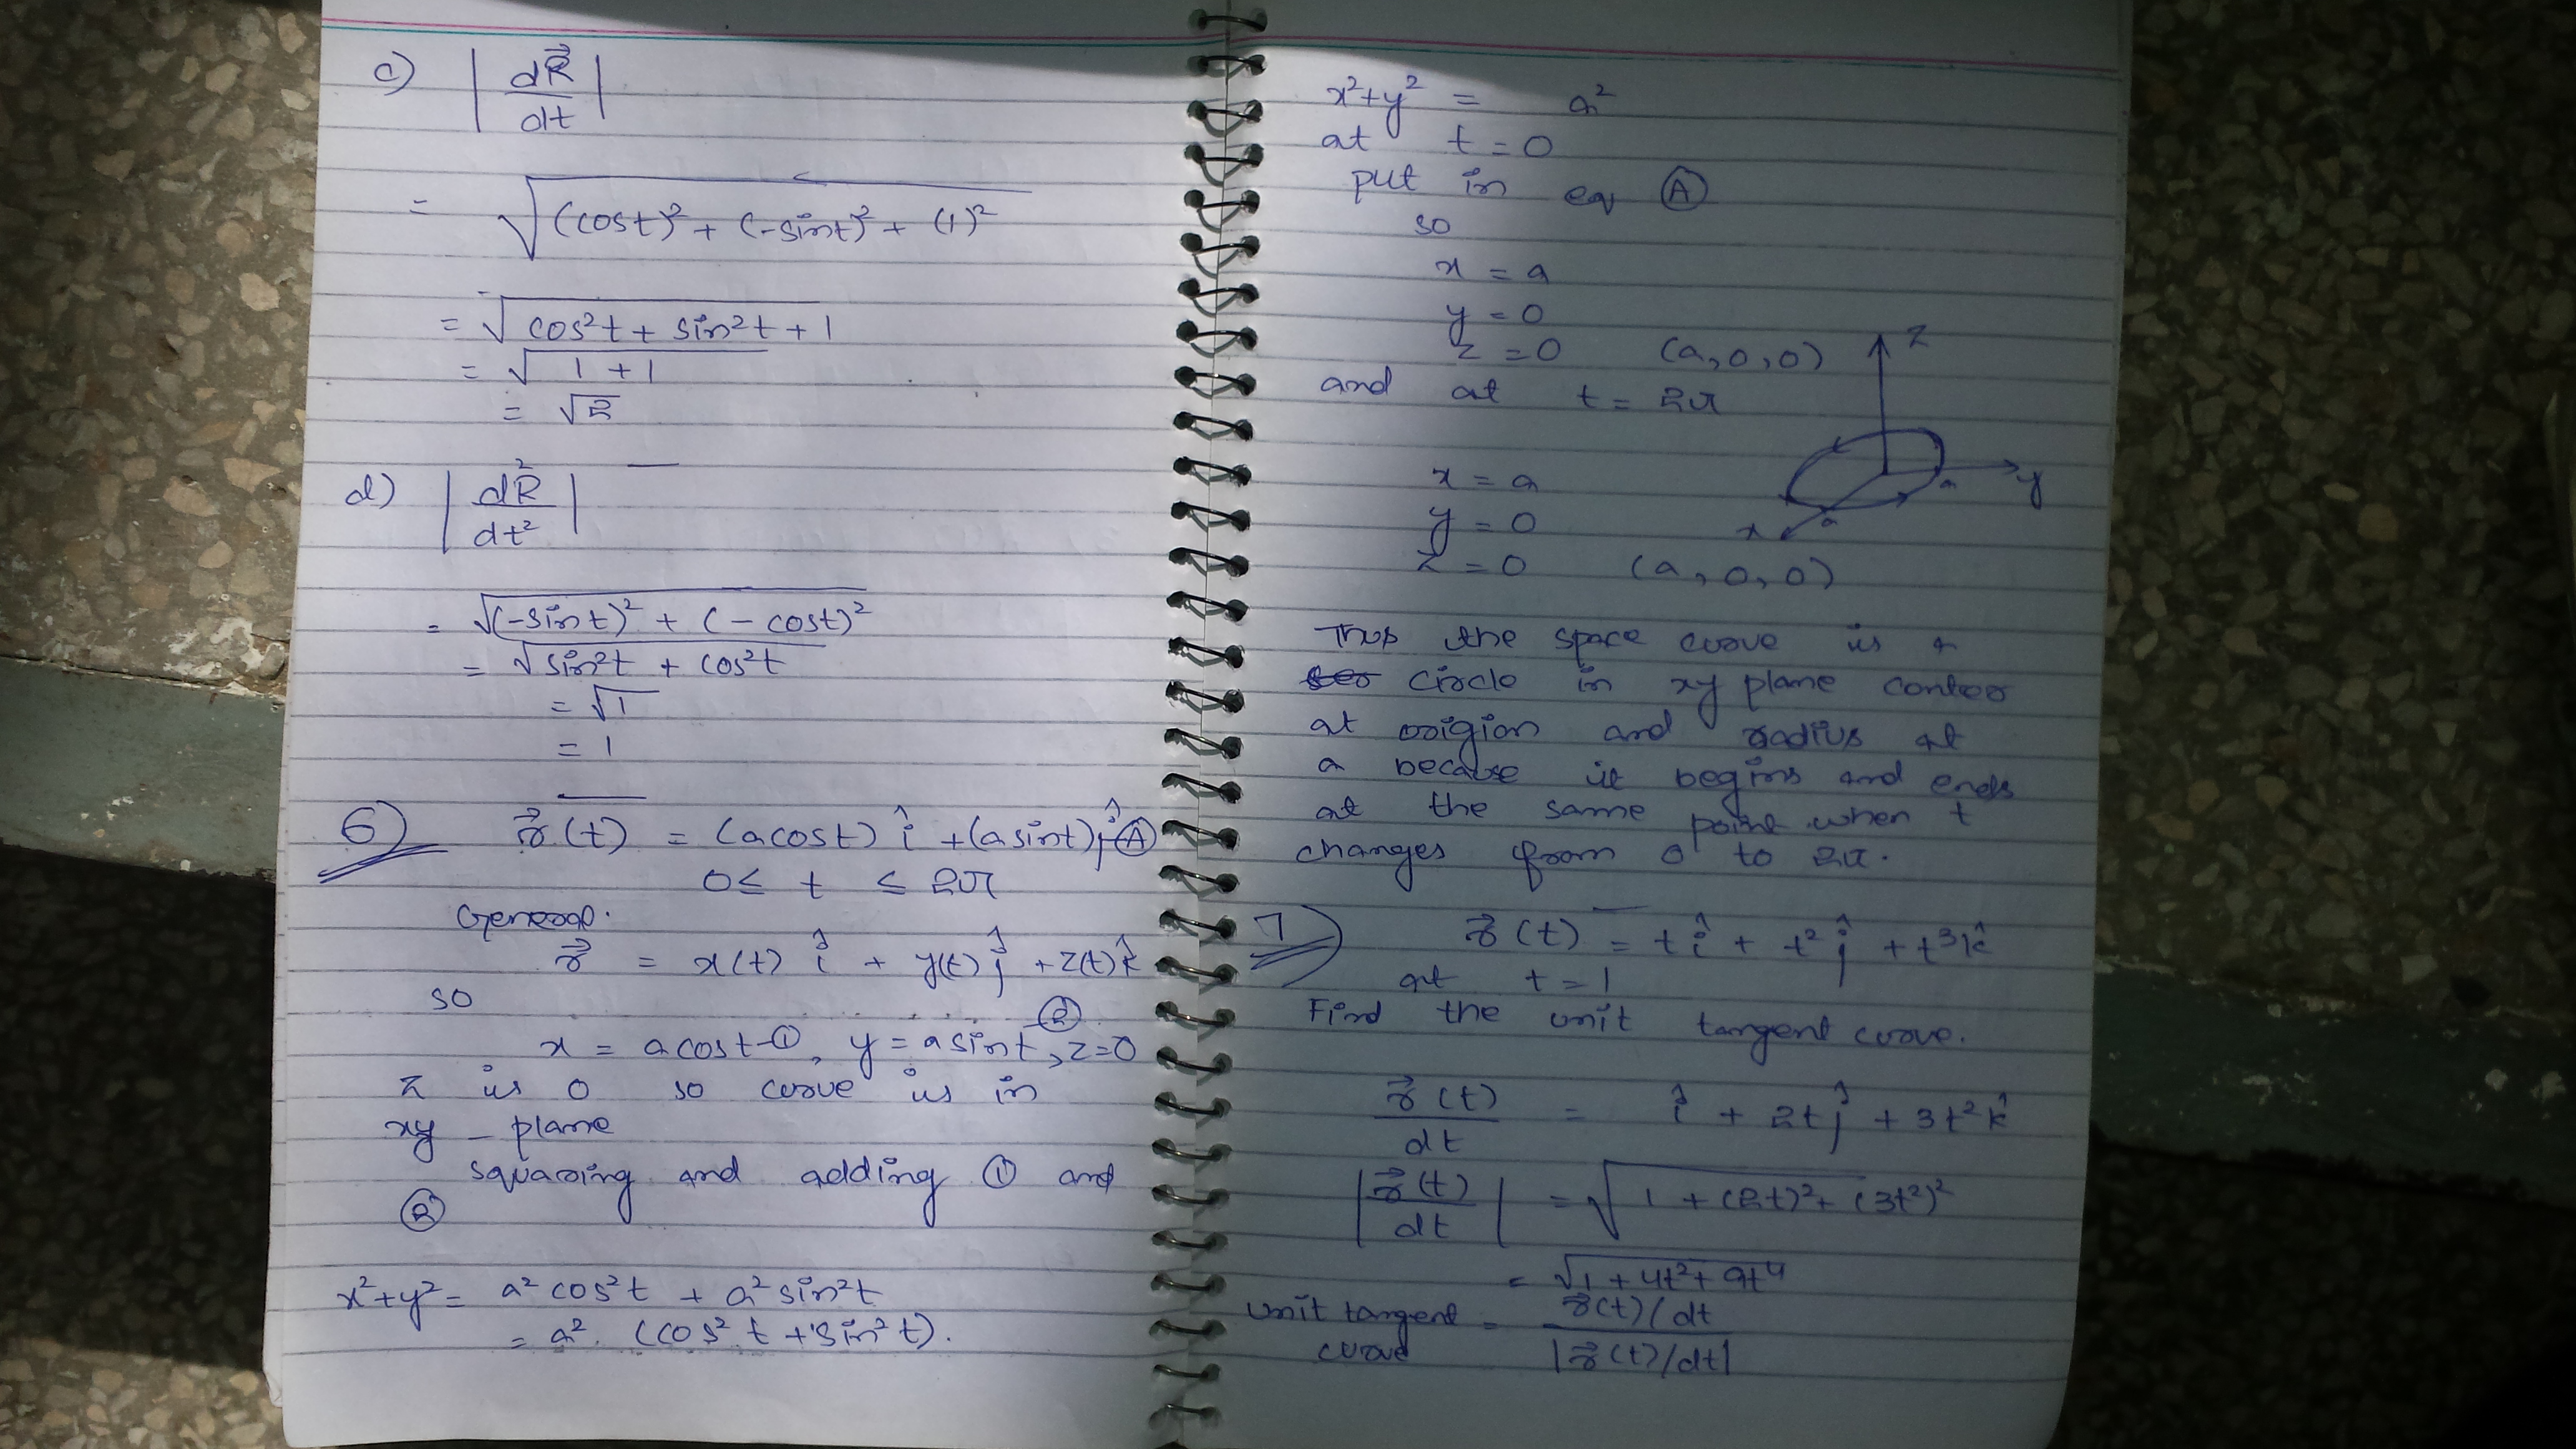 c) |dR⃗/dt|
= √((cost)² + (-sint)² + (1)²)
= √(cos²t + sin²t + 1)
= √(1 + 1)
= √2
d) |d²R/dt²|
= √((-sint)² + (-cost)²)
= √(sin²t + cos²t)
= √1
= 1
6) r⃗(t) = (acost) î + (asint) ĵ -Ⓐ
0 ≤ t ≤ 2π
General.
r⃗ = x(t) î + y(t) ĵ + z(t) k̂
so
x = acost -①, y = asint ②, z=0
z is 0 so curve is in
xy - plane
squaring and adding ① and
②
x²+y² = a² cos²t + a² sin²t
= a². (cos² t + sin² t).
x²+y² = a²
at t = 0
put in eq Ⓐ
so
x = a
y = 0
z = 0 (a, 0, 0)
and at t = 2π
x = a
y = 0
z = 0 (a, 0, 0)
z
y
a
x
a
Thus the space curve is a
circle in xy plane center
at origion and radius at
a because it begins and ends
at the same point when t
changes from 0 to 2π.
7) r⃗(t) = t î + t² ĵ + t³ k̂
at t = 1
Find the unit tangent curve.
r⃗(t)/dt = î + 2t ĵ + 3t² k̂
|r⃗(t)/dt| = √(1 + (2t)² + (3t²)²)
= √(1 + 4t² + 9t⁴)
unit tangent curve = (r⃗(t)/dt) / |r⃗(t)/dt|